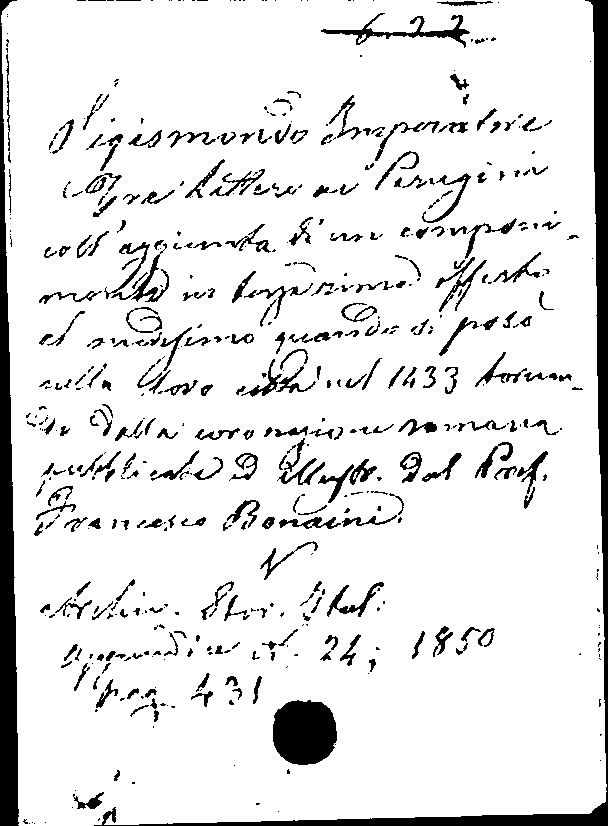 622
Sigismondo Imperatore
Tre lettere ai Perugini
coll'aggiunta di un componi-
mento in terza rima offerto
al medesimo quando si posò
nella loro città nel 1433 tornan-
do dalla coronazione romana
pubblicate ed illustr. dal Prof.
Francesco Bonaini.
Archiv. Stor. Ital.
Appendice N. 24, 1850
pag. 431